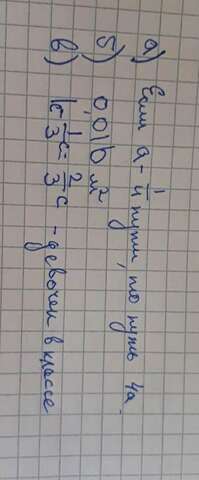 а) Если а - 1/4 пути, то путь 4а.
б) 0,01b м²
в) 1c - 1/3 c = 2/3 c - девочек в классе